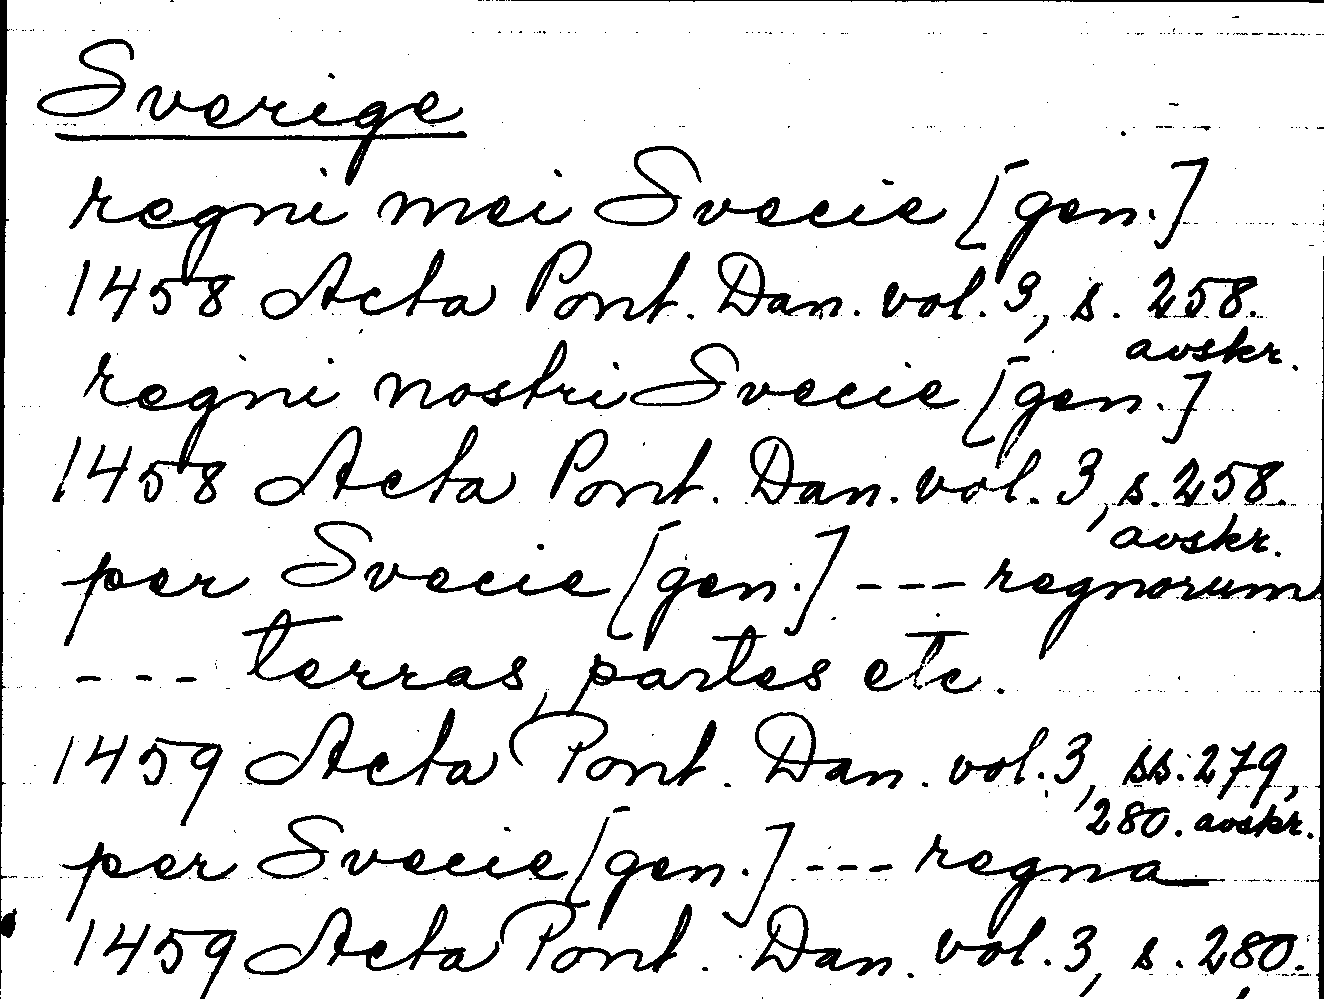 Sverige
regni mei Svecie [gen.]
1458 Acta Pont. Dan. vol. 3, s. 258.
avskr.
regni nostri Svecie [gen.]
1458 Acta Pont. Dan. vol. 3, s. 258.
avskr.
per Svecie [gen.] --- regnorum
--- terras, partes etc.
1459 Acta Pont. Dan. vol. 3, ss. 279,
280. avskr.
per Svecie [gen.] --- regna
1459 Acta Pont. Dan. vol. 3, s. 280.